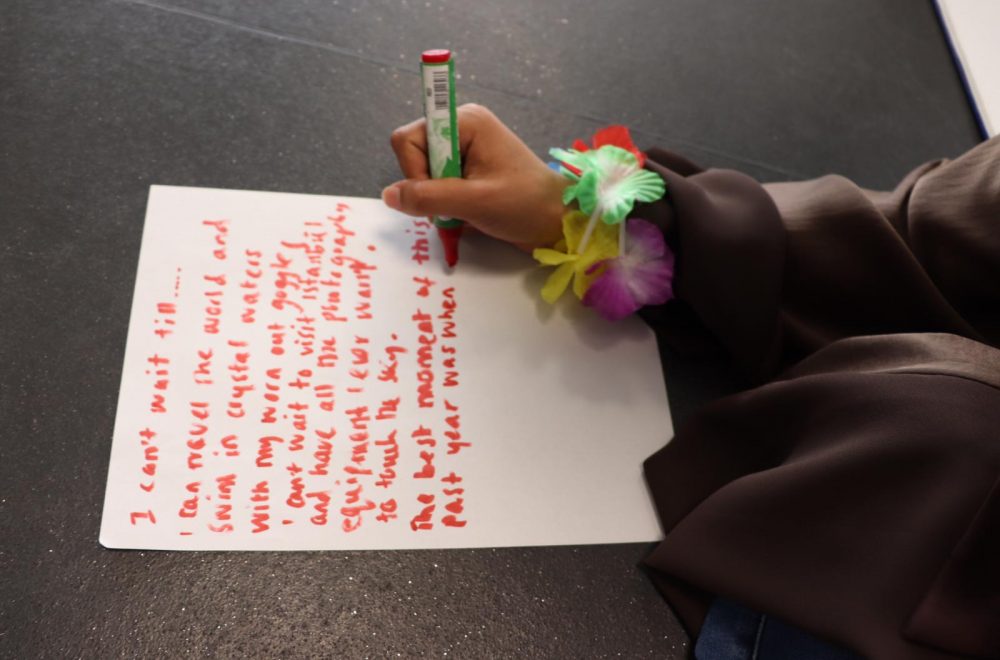 I can't wait till.....
I can travel the world and
swim in crystal waters
with my worn out goggles
I can't wait to visit Istanbul
and have all the photography
equipment I ever want.
to touch the sky.
The best moment of this
past year was when